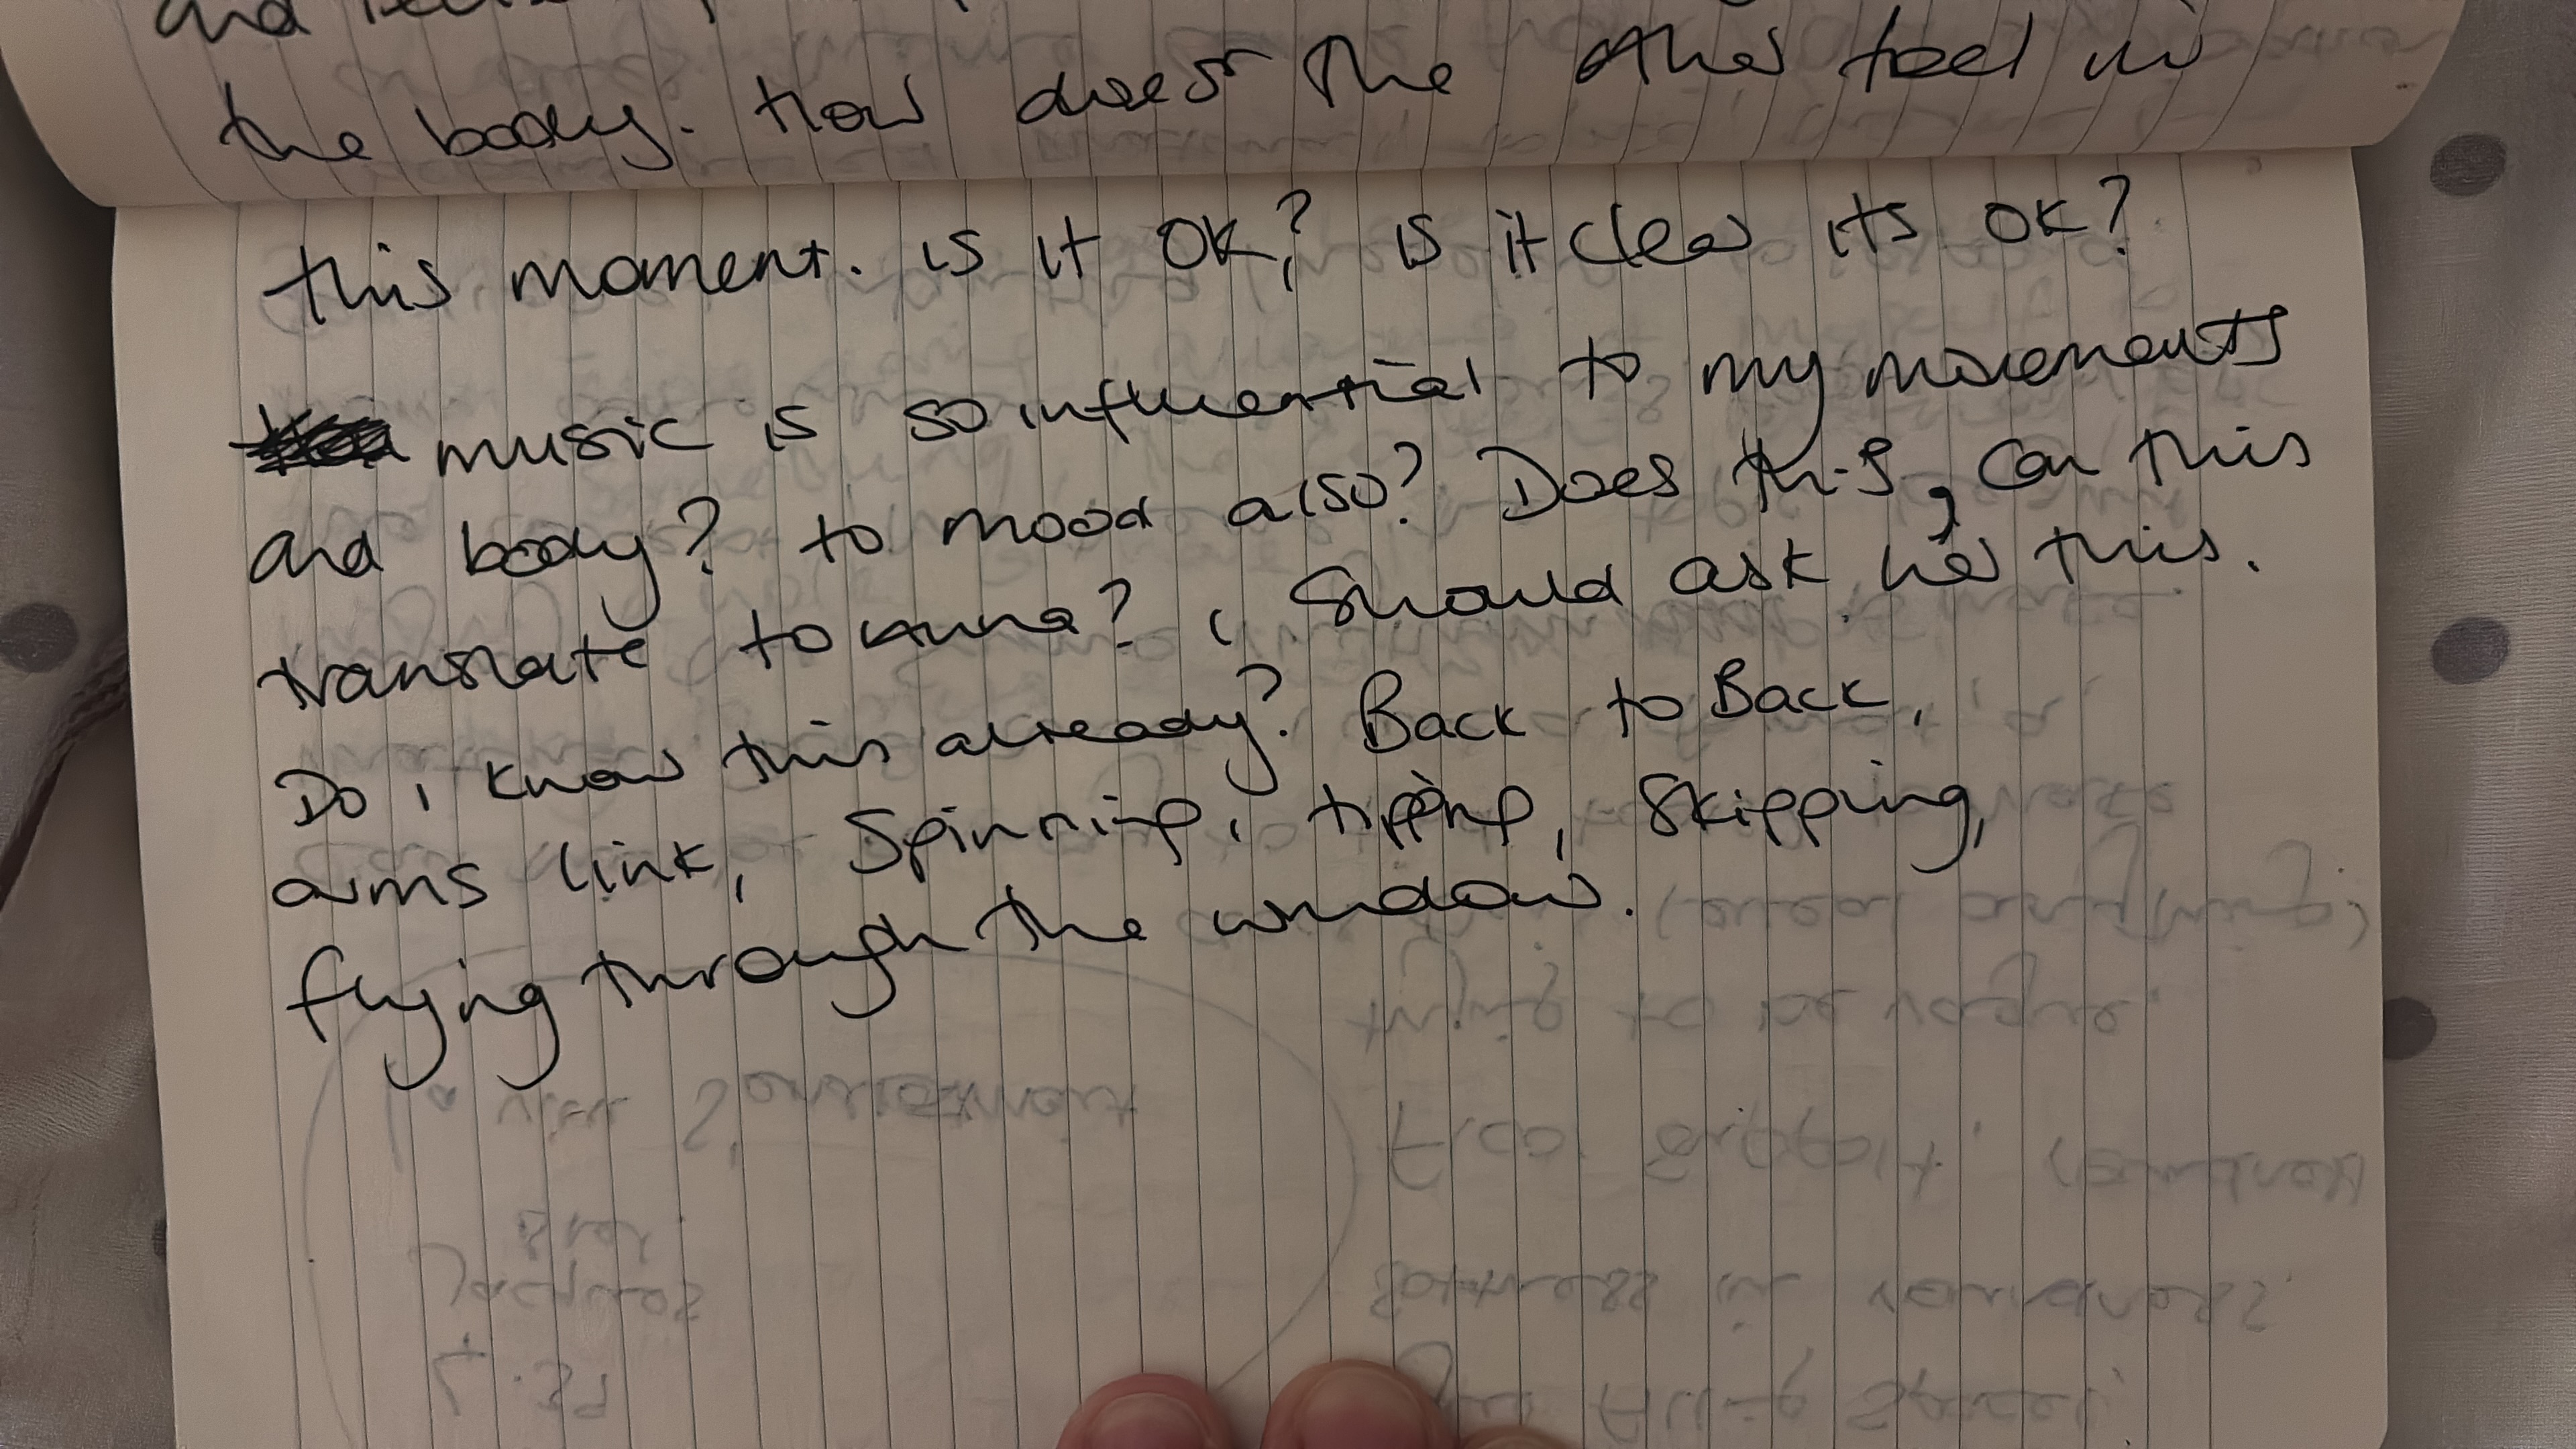 and
the body. How does the other feel in
this moment. is it OK? is it clear its OK?
music is so influential to my movements
and body? to mood also? Does this, can this
translate to Anna? i should ask her this.
Do i know this already? Back to Back,
arms link, spinning, tipping, skipping,
flying through the window.